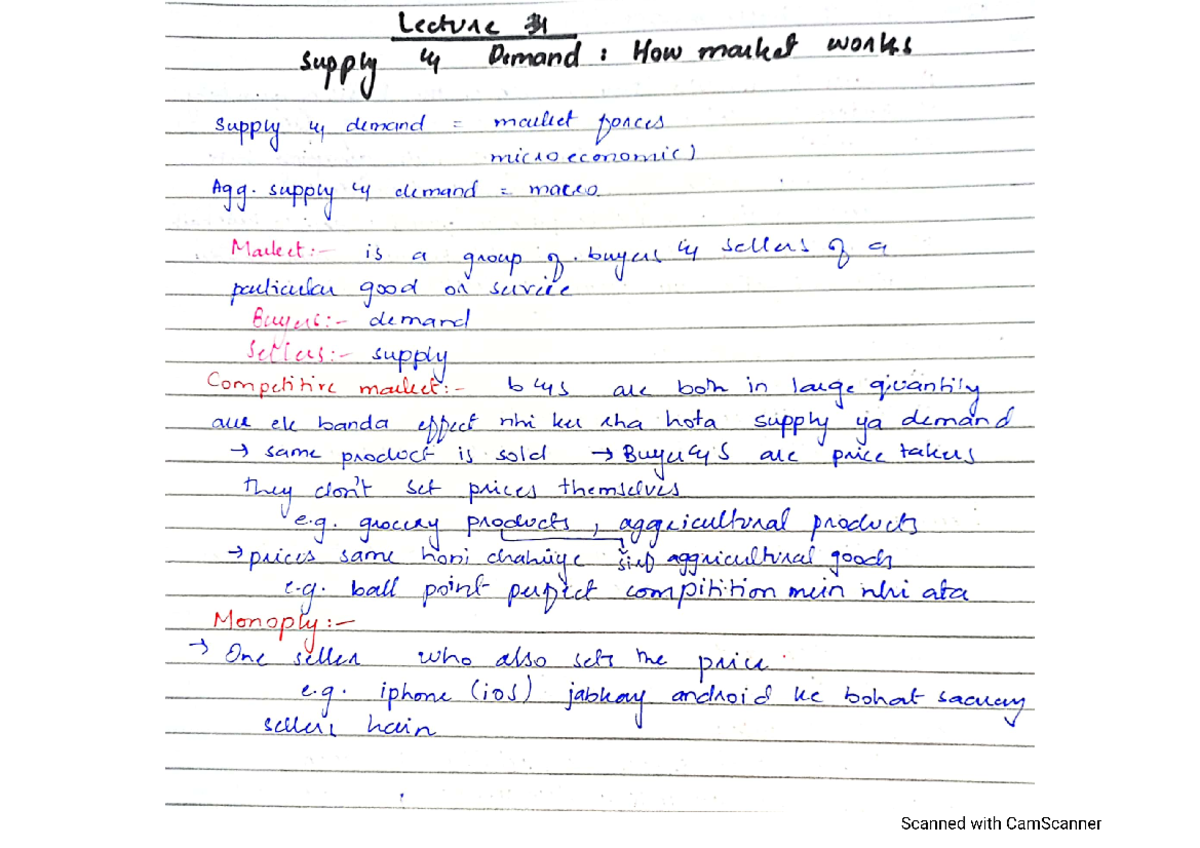 Lecture
Supply & Demand : How market works
Supply & demand = market forces
microeconomic)
Agg. supply & demand = macro
Market :- is a group of buyers & sellers of a
particular good or service
Buyers :- demand
Sellers :- supply
Competitire market :- b & s are both in large quantity
aur ek banda effect nhi ker rha hota supply ya demand
→ same product is sold → Buyer & S are price takers
they don't set prices themselves
e.g. grocery products , aggricultural products
→ prices same honi chahiiye sirf aggricultural goods
e.g. ball point perfect compitition mein nhi ata
Monoply :-
→ One seller who also sets the price
e.g. iphone (ios) jabkay android ke bohat saaray
sellers hain
Scanned with CamScanner